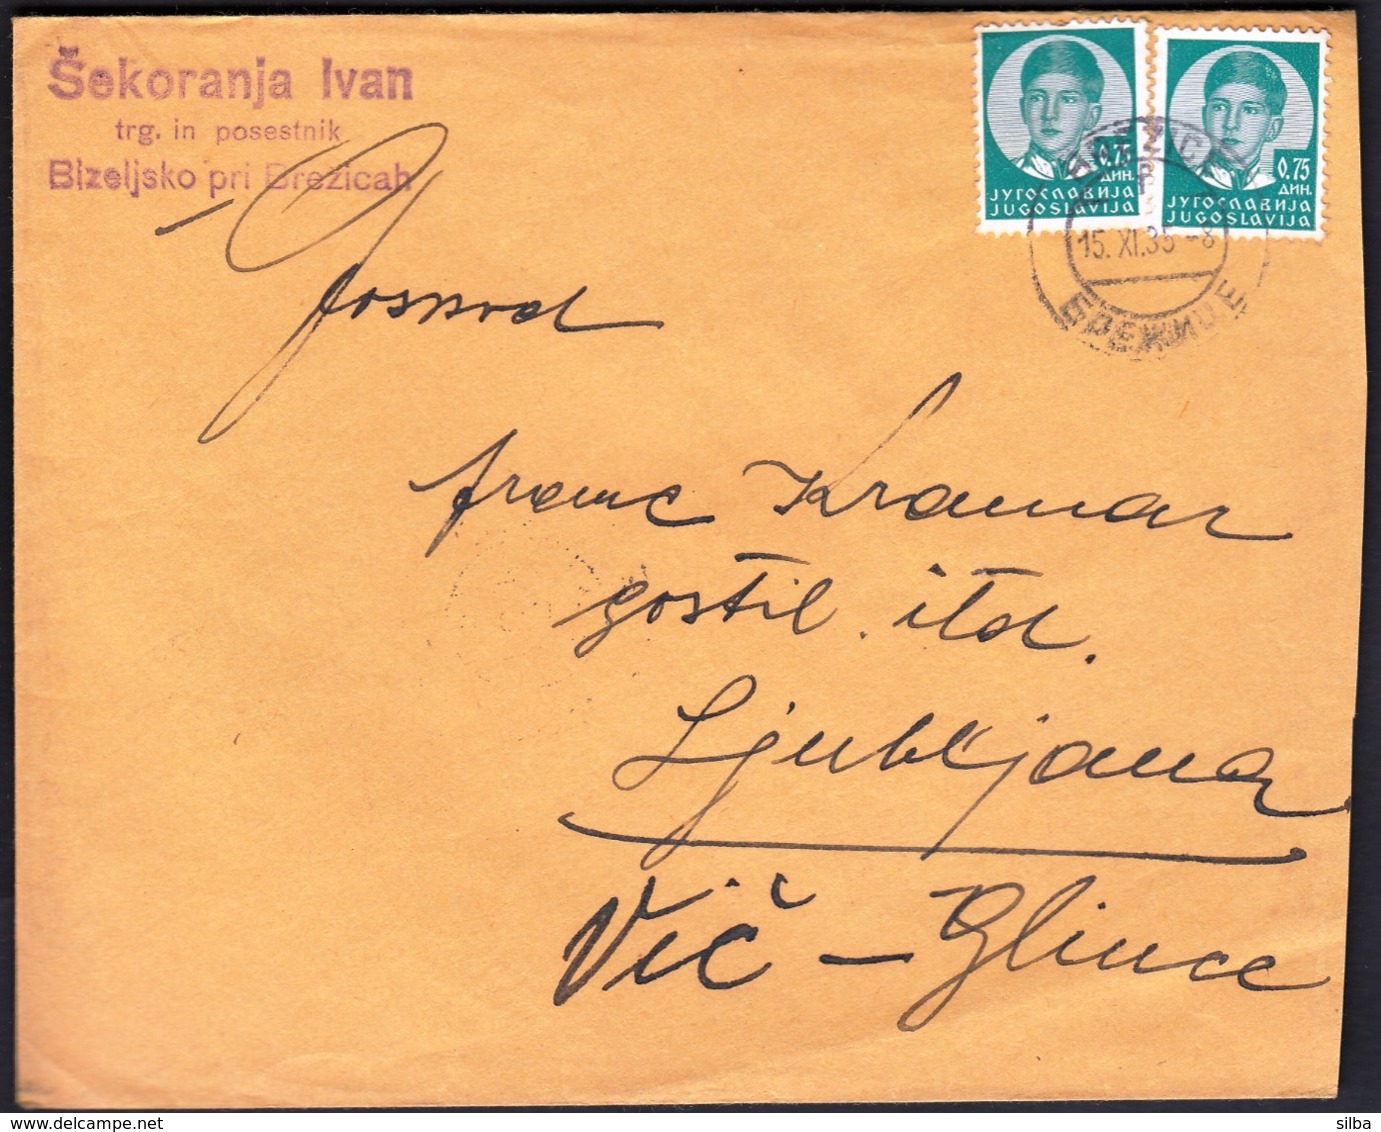 Šekoranja Ivan
trg. in posestnik
Bizeljsko pri Brežicah
0.75
ДИН.
ЈУГОСЛАВИЈА
JUGOSLAVIJA
0.75
ДИН.
ЈУГОСЛАВИЈА
JUGOSLAVIJA
BREŽICE
15. XI. 35 -8
БРЕЖИЦЕ
Gospod
Franc Kramar
gostil. itd.
Ljubljana
Vič – Glince
silba